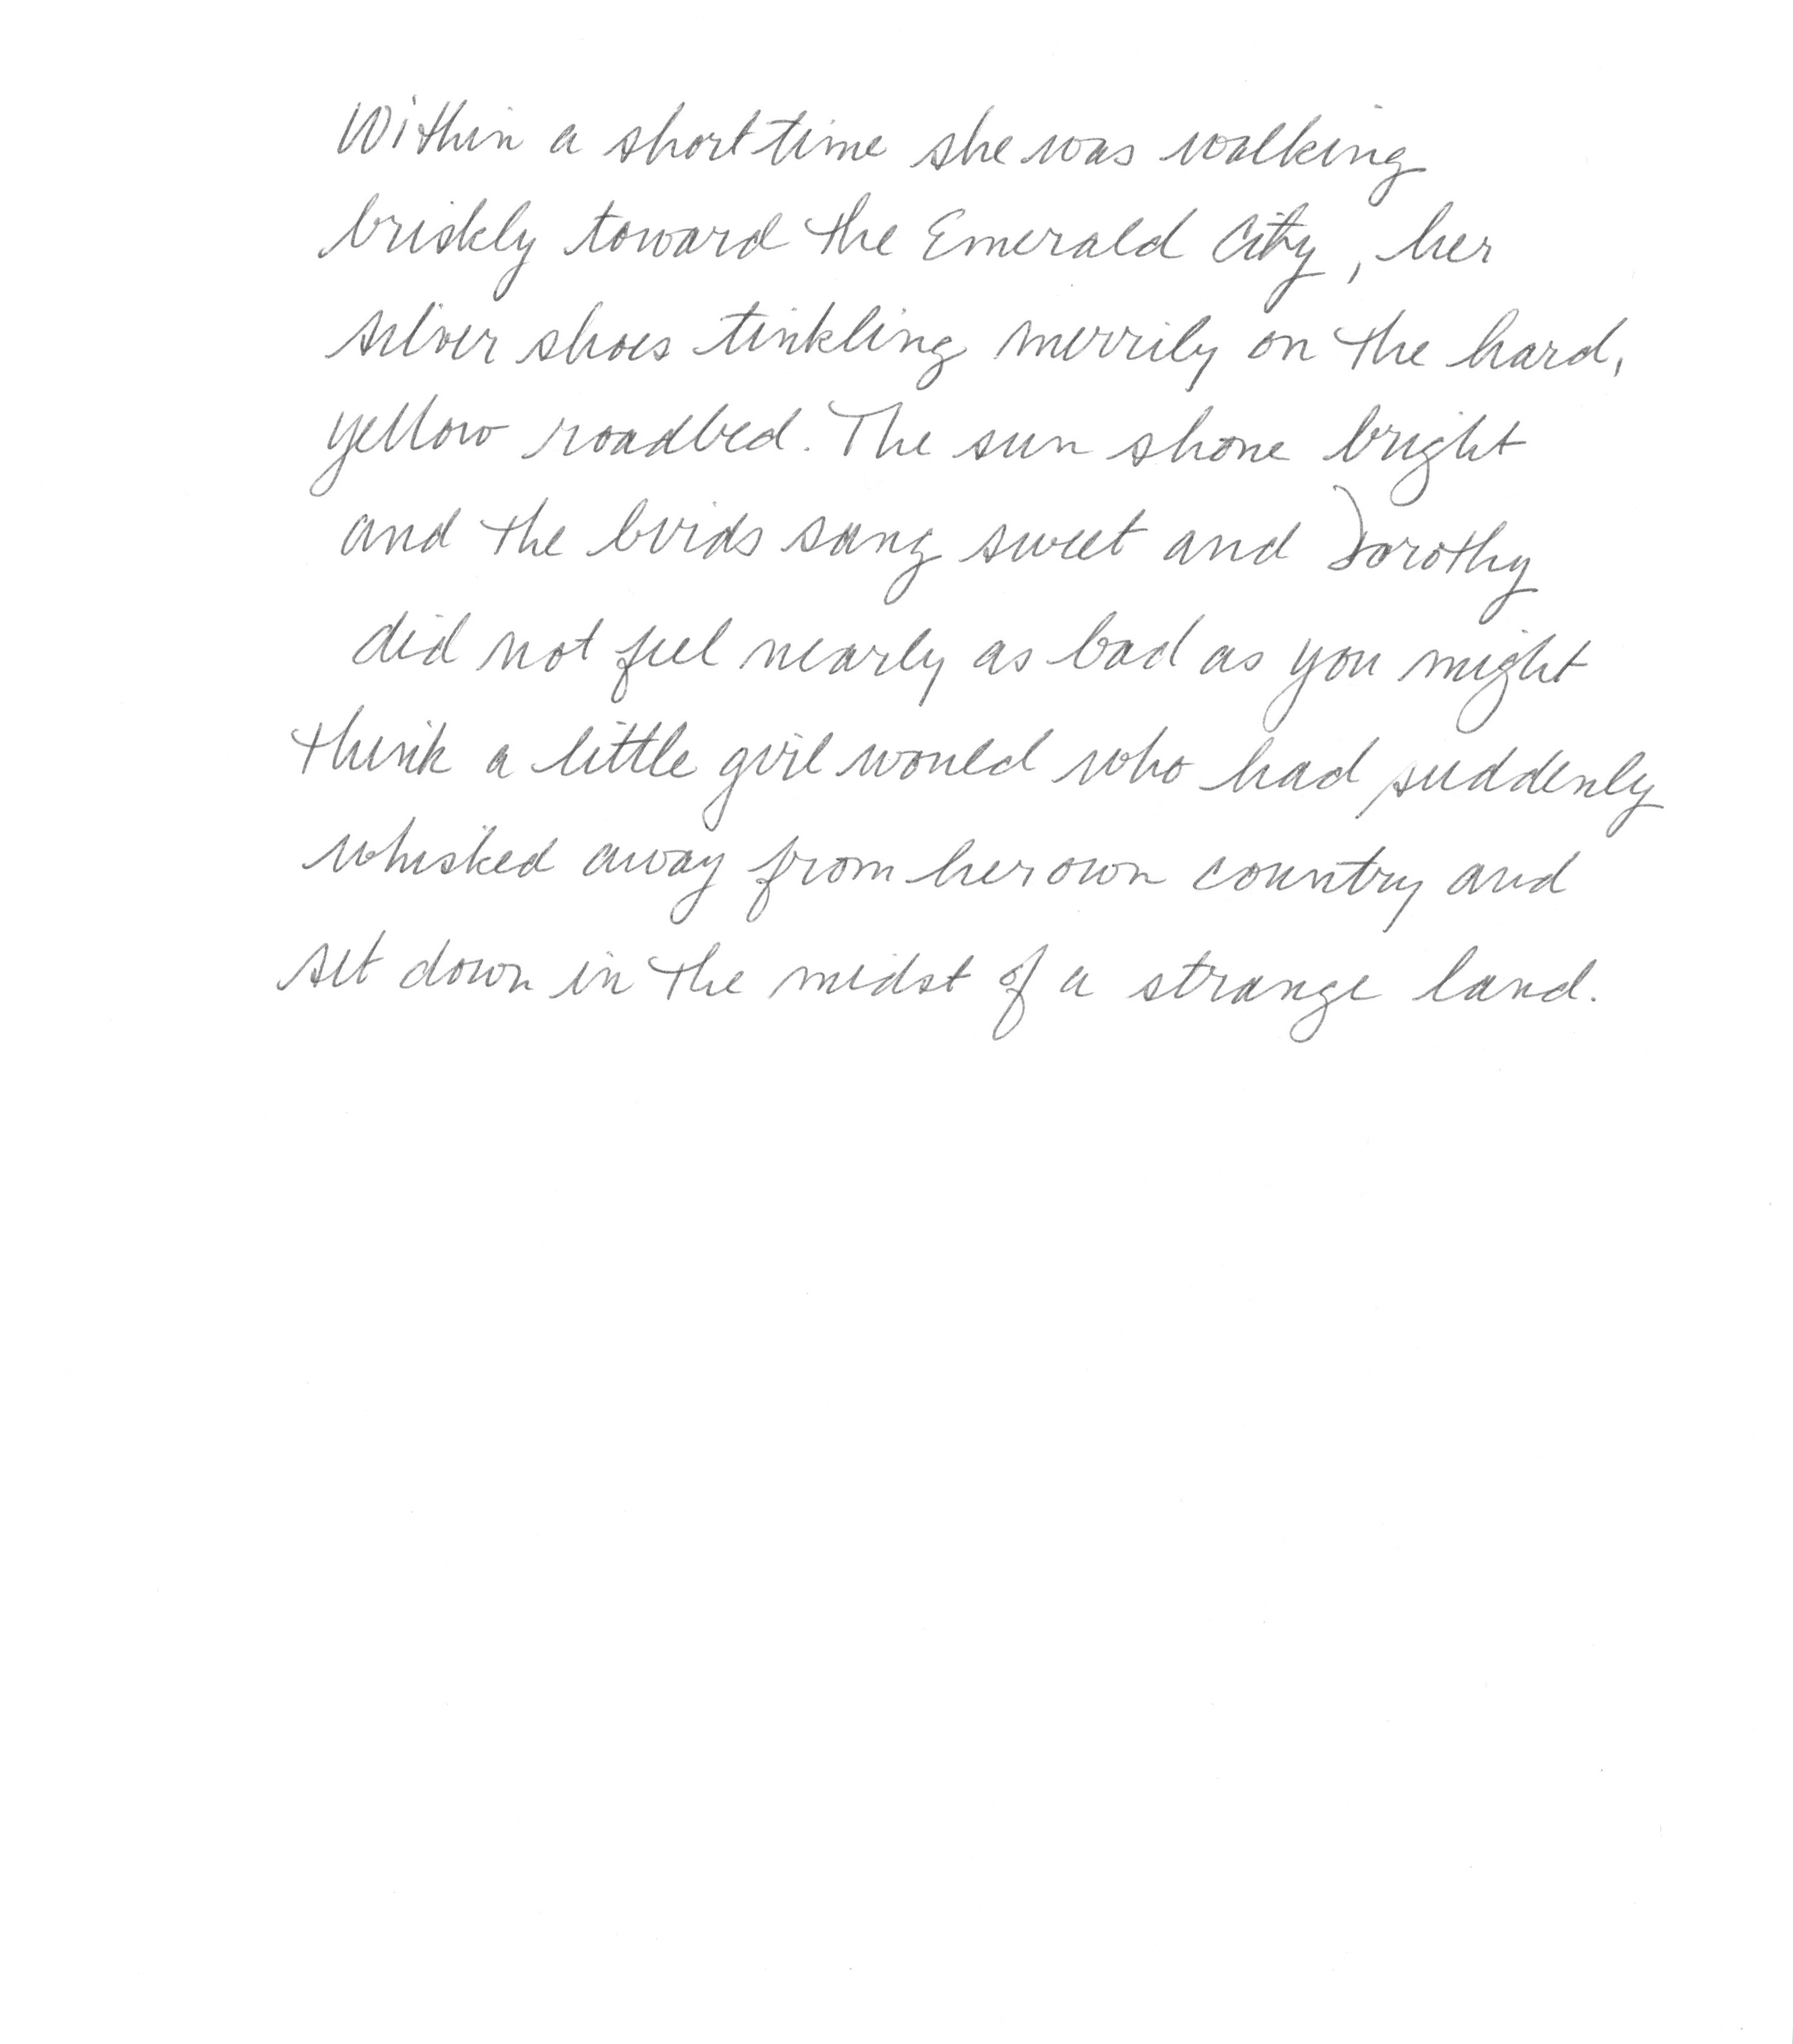 Within a short time she was walking
briskly toward the Emerald City, her
silver shoes tinkling merrily on the hard,
yellow roadbed. The sun shone bright
and the birds sang sweet and Dorothy
did not feel nearly as bad as you might
think a little girl would who had suddenly
whisked away from her own country and
set down in the midst of a strange land.